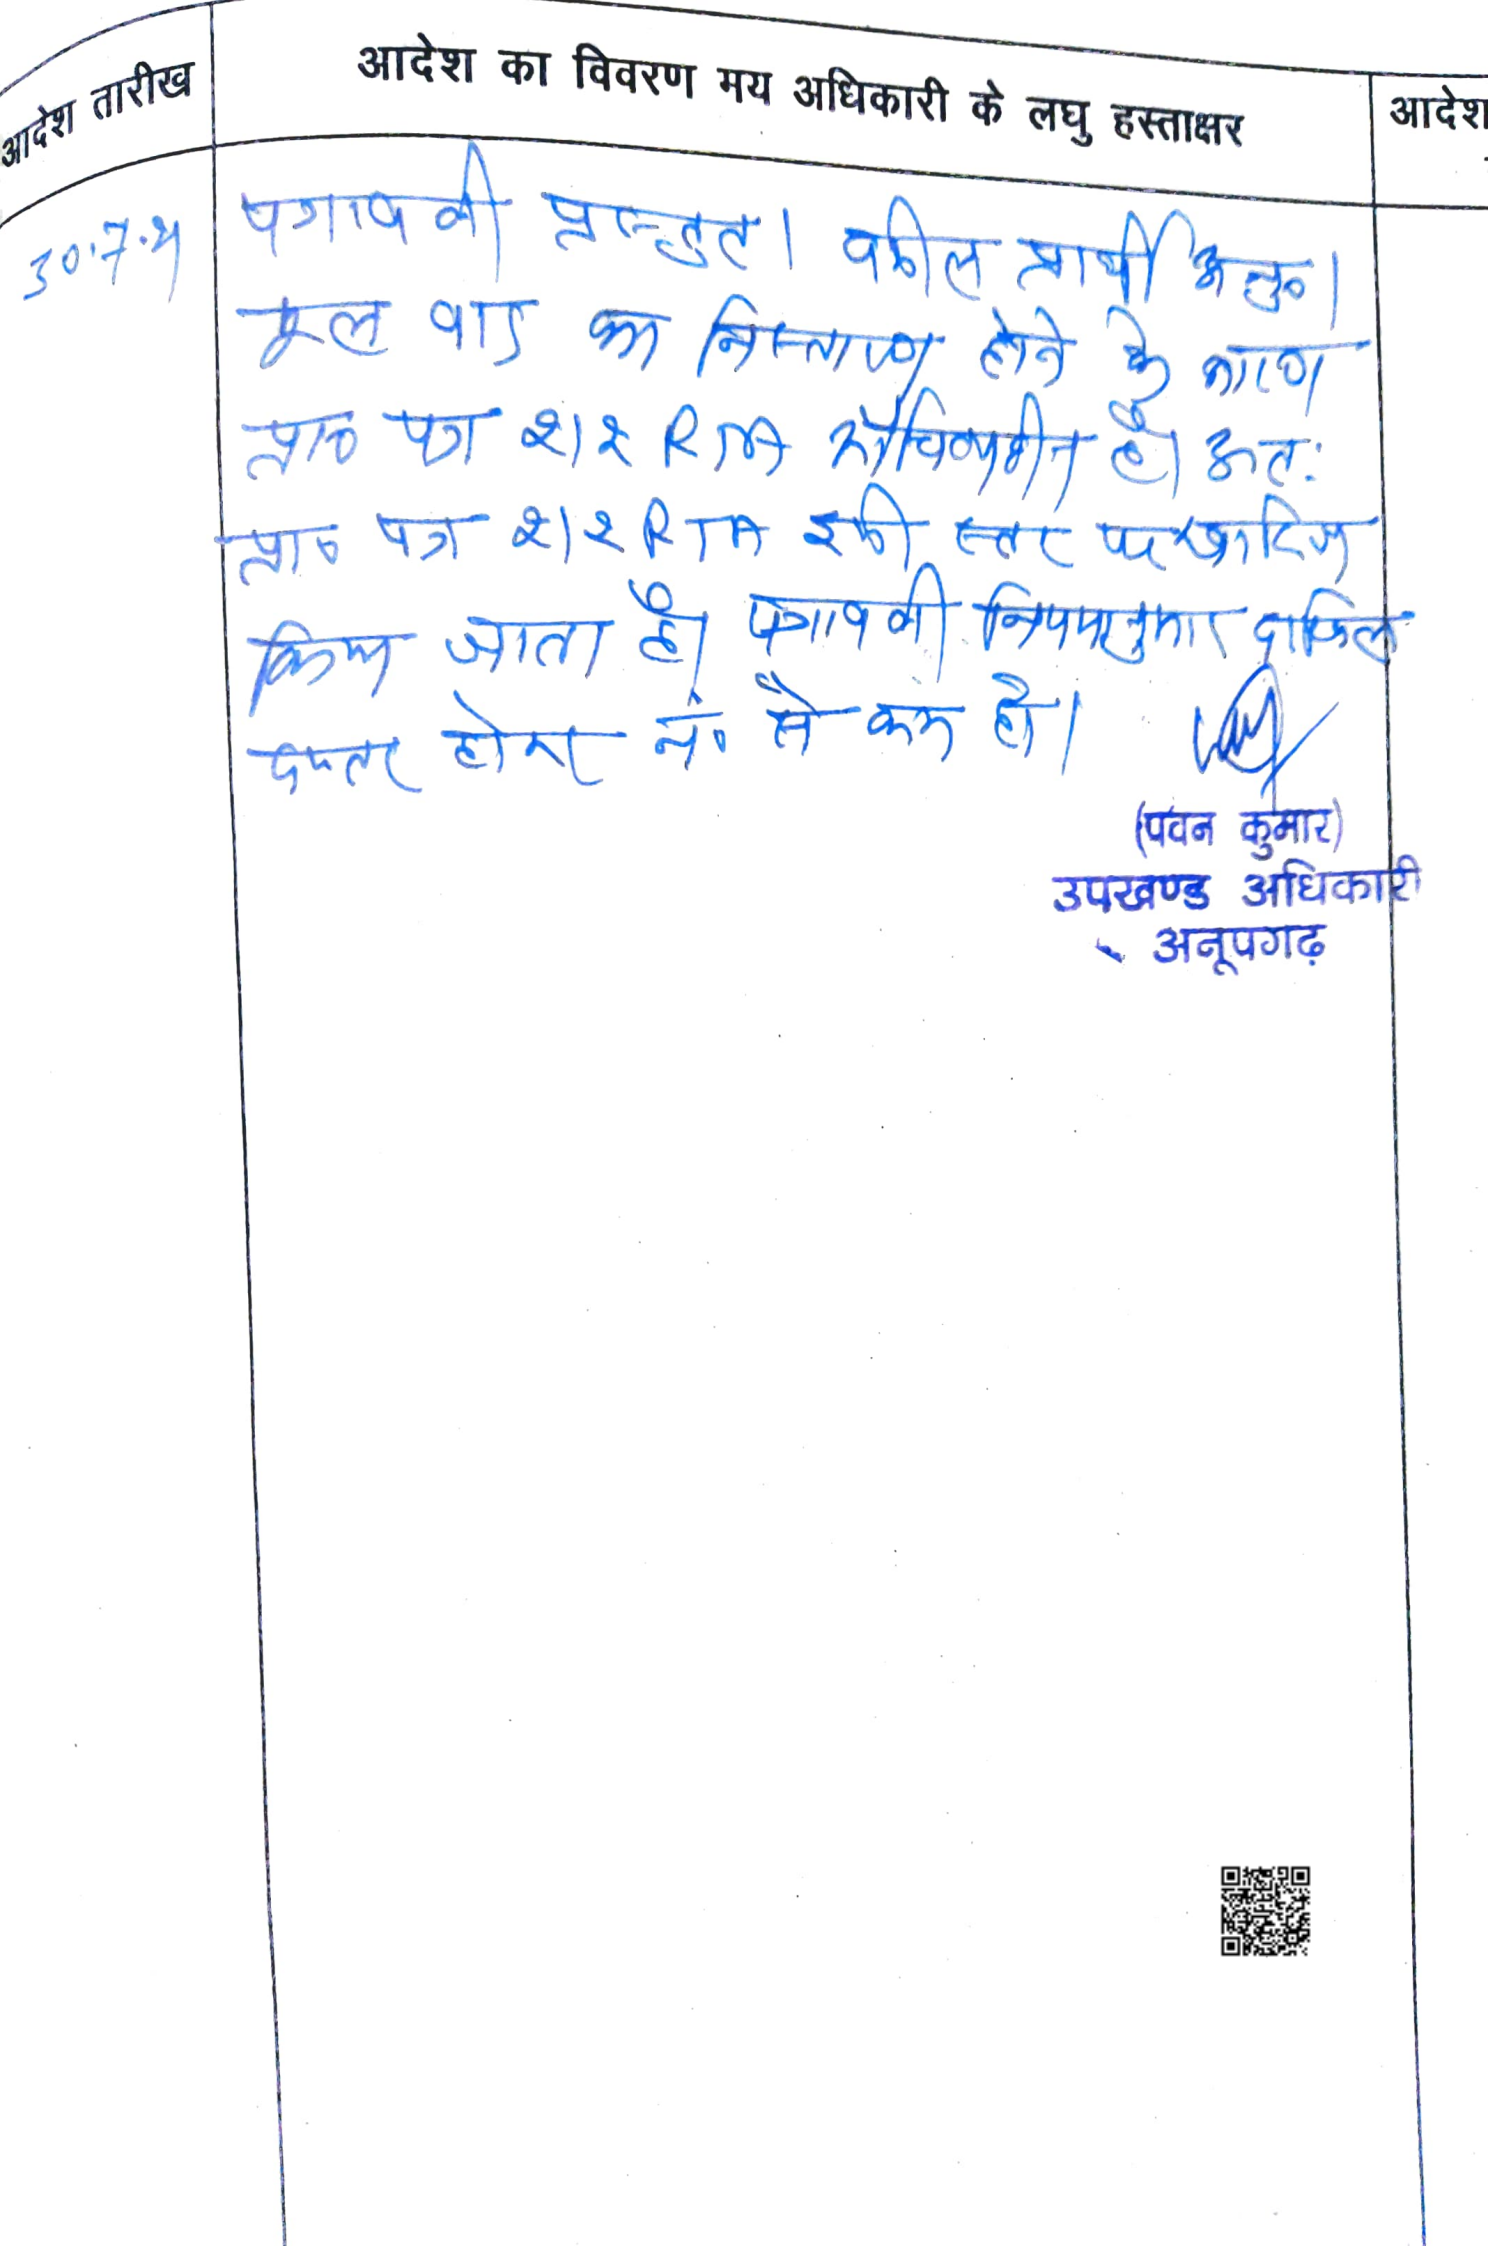 आदेश तारीख
आदेश का विवरण मय अधिकारी के लघु हस्ताक्षर
आदेश
30.7.
पत्रावली प्रस्तुत। वकील प्रार्थी अनु०।
मूल वाद का निस्तारण होने के कारण
प्रा० पत्र 212 RTA औचित्यहीन है। अतः
प्रा० पत्र 212 RTA इसी स्तर पर खारिज
किया जाता है। पत्रावली नियमानुसार दाखिल
दफ्तर होकर नं० से कम हो।
(पवन कुमार)
उपखण्ड अधिकारी
अनूपगढ़